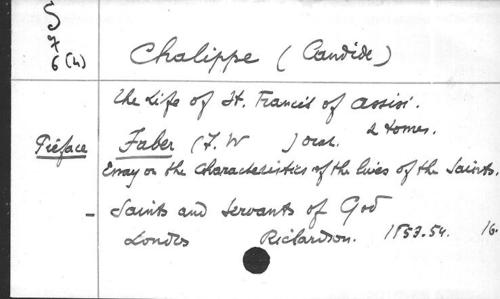 S
7
6 (4)
Chalippe ( Candide )
The Life of St. Francis of Assisi.
2 tomes.
Préface Faber (F. W ) orat.
Essay on the characteristics of the lives of the Saints.
- Saints and Servants of God
Londres Richardson. 1853-54. 16.